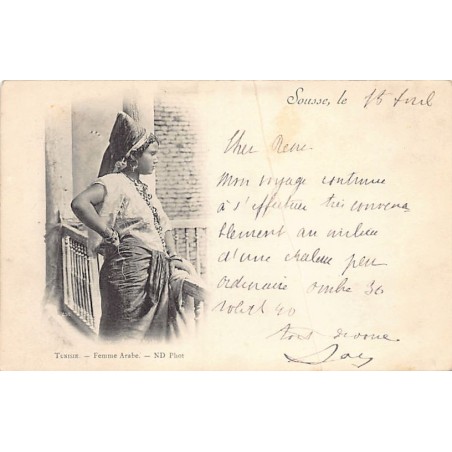 Sousse, le 15 Avril
Cher René.
Mon voyage continue
à s'effectuer très convena
blement au milieu
d'une chaleur peu
ordinaire ombre 30
soleil 40
tout dévoué
TUNISIE. — Femme Arabe. — ND Phot